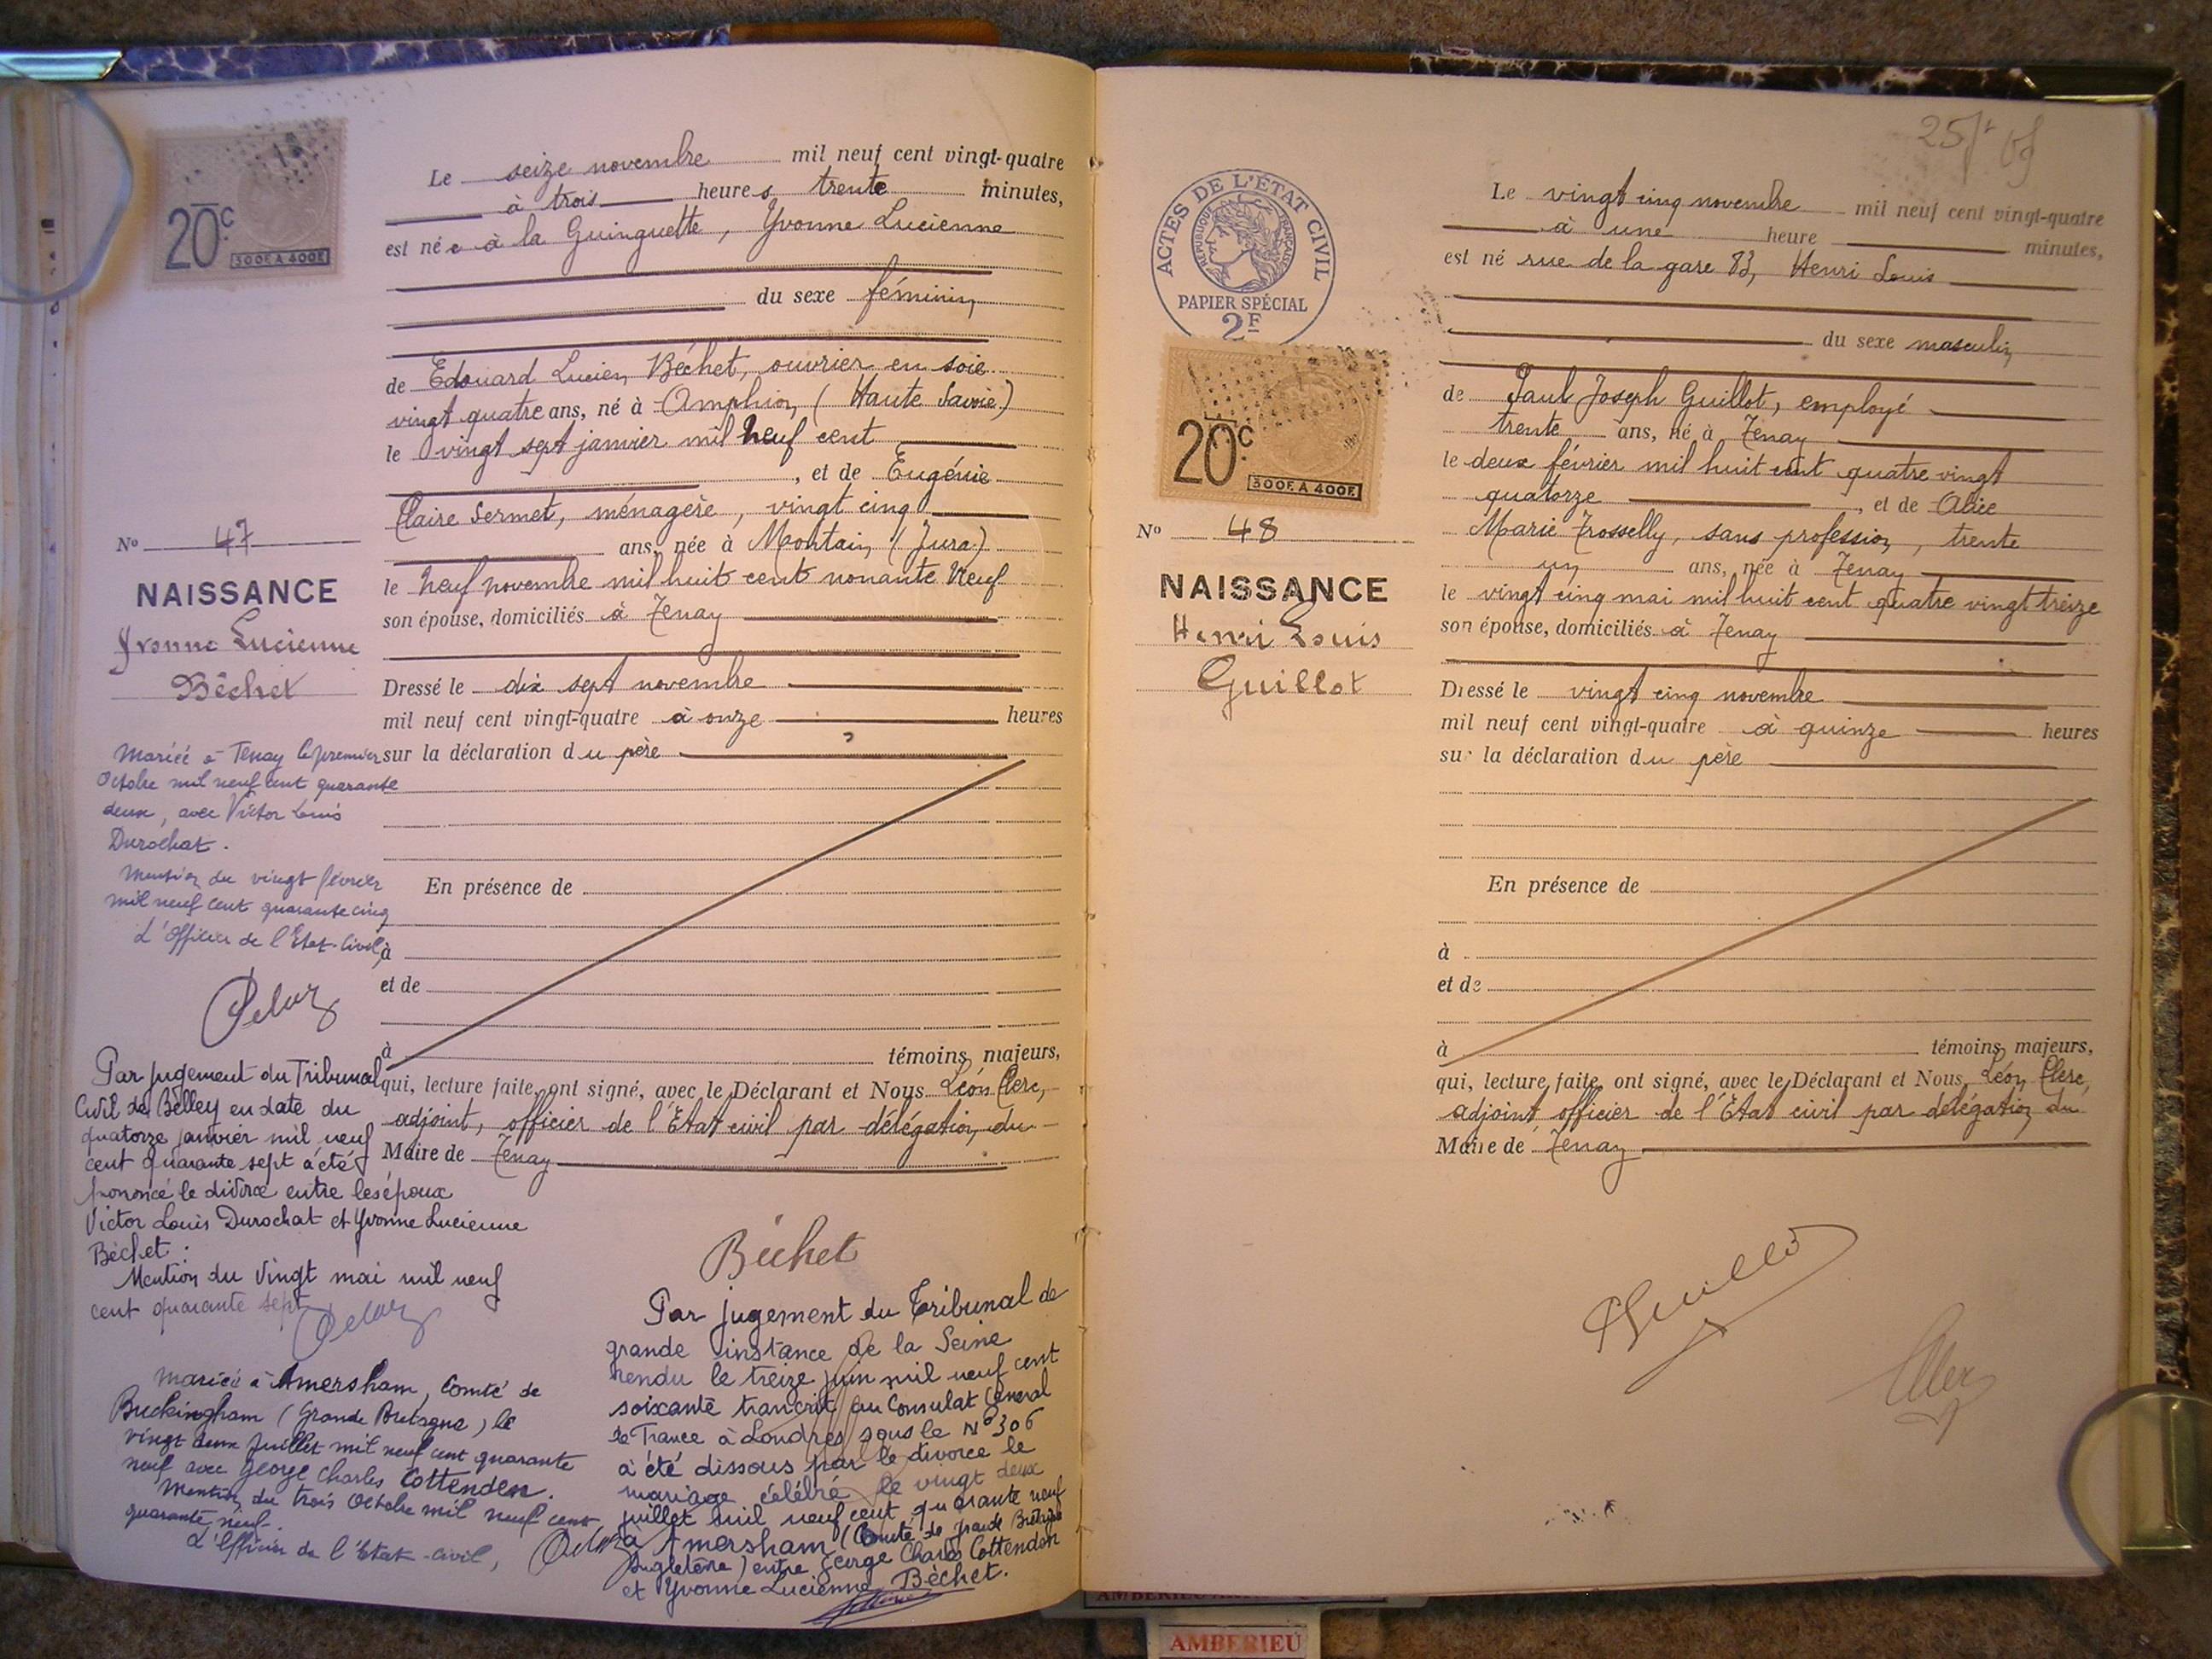 20c
300F A 400F
Le seize novembre mil neuf cent vingt-quatre
à trois heures trente minutes,
est née à la Guinguette, Yvonne Lucienne
du sexe féminin
de Edouard Lucien Béchet, ouvrier en soie
vingt quatre ans, né à Amphion (Haute Savoie)
le vingt sept janvier mil neuf cent
, et de Eugénie
Claire Sermet, ménagère, vingt cinq
ans, née à Montain (Jura)
le neuf novembre mil huit cent nonante neuf
son épouse, domiciliés à Tenay
Dressé le dix sept novembre
mil neuf cent vingt-quatre à onze heures
sur la déclaration du père
En présence de
à
et de
à témoins majeurs,
qui, lecture faite, ont signé, avec le Déclarant et Nous Léon Clerc,
adjoint, officier de l'Etat civil par délégation du
Maire de Tenay
Béchet
No 47
NAISSANCE
Yvonne Lucienne
Béchet
Mariée à Tenay le premier
Octobre mil neuf cent quarante
deux, avec Victor Louis
Durochat.
Mention du vingt février
mil neuf cent quarante cinq
L'Officier de l'Etat-Civil,
Par jugement du Tribunal
Civil de Belley en date du
quatorze janvier mil neuf
cent quarante sept a été
prononcé le divorce entre les époux
Victor Louis Durochat et Yvonne Lucienne
Béchet.
Mention du Vingt mai mil neuf
cent quarante sept
Mariée à Amersham, Comté de
Buckingham (Grande Bretagne) le
vingt deux Juillet mil neuf cent quarante
neuf avec George Charles Cottenden.
Mention du trois Octobre mil neuf cent
quarante neuf.
L'Officier de l'Etat-civil,
Par jugement du Tribunal de
grande instance de la Seine
rendu le treize juin mil neuf cent
soixante trancrit au Consulat Général
de France à Londres sous le No 306
a été dissous par le divorce le
mariage célébré le vingt deux
juillet mil neuf cent quarante neuf
à Amersham (Comté de Grande Bretagne
Angleterre) entre George Charles Cottenden
et Yvonne Lucienne Béchet.
25
ACTES DE L'ÉTAT CIVIL
RÉPUBLIQUE FRANÇAISE
PAPIER SPÉCIAL
2F
20c
300F A 400F
No 48
NAISSANCE
Henri Louis
Guillot
Le vingt cinq novembre mil neuf cent vingt-quatre
à une heure minutes,
est né rue de la gare 83, Henri Louis
du sexe masculin
de Paul Joseph Guillot, employé
trente ans, né à Tenay
le deux février mil huit cent quatre vingt
quatorze , et de Alice
Marie Trosselly, sans profession, trente
un ans, née à Tenay
le vingt cinq mai mil huit cent quatre vingt treize
son épouse, domiciliés à Tenay
Dressé le vingt cinq novembre
mil neuf cent vingt-quatre à quinze heures
sur la déclaration du père
En présence de
à
et de
à témoins majeurs,
qui, lecture faite, ont signé, avec le Déclarant et Nous Léon Clerc,
adjoint, officier de l'Etat civil par délégation du
Maire de Tenay
AMBERIEU